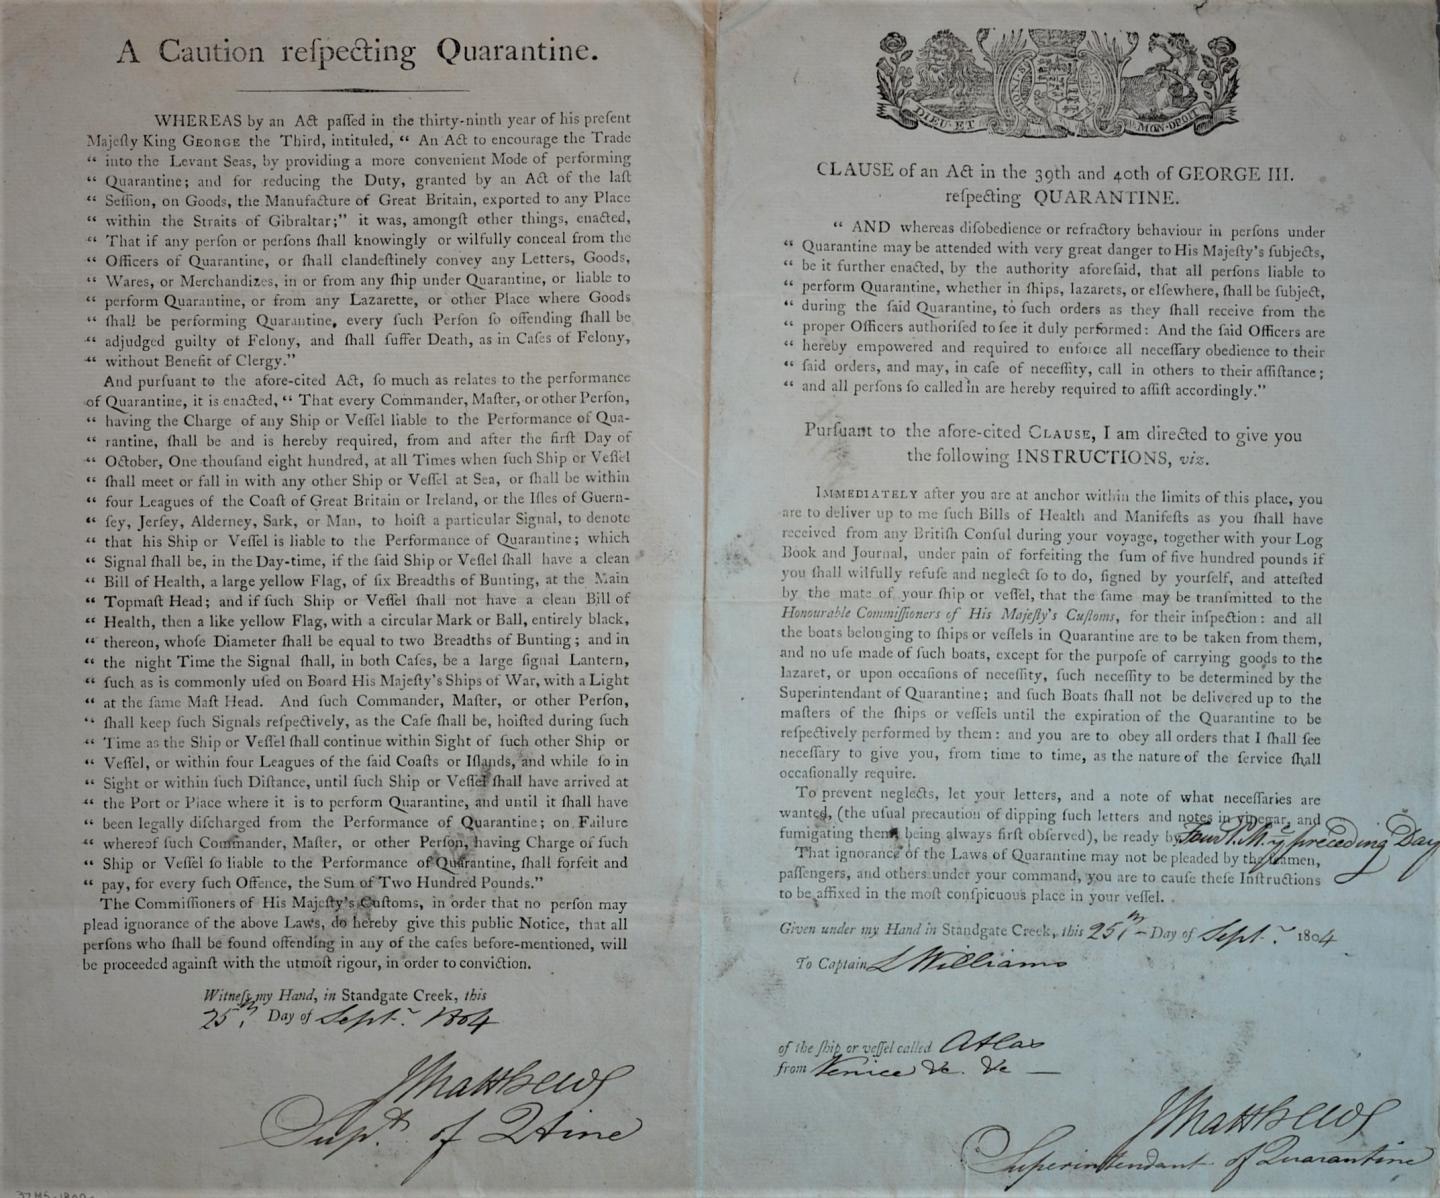 A Caution reſpecting Quarantine.
WHEREAS by an Act paſſed in the thirty-ninth year of his preſent
Majeſty King GEORGE the Third, intituled, “ An Act to encourage the Trade
“ into the Levant Seas, by providing a more convenient Mode of performing
“ Quarantine; and for reducing the Duty, granted by an Act of the laſt
“ Seſſion, on Goods, the Manufacture of Great Britain, exported to any Place
“ within the Straits of Gibraltar;” it was, amongſt other things, enacted,
“ That if any perſon or perſons ſhall knowingly or wilfully conceal from the
“ Officers of Quarantine, or ſhall clandeſtinely convey any Letters, Goods,
“ Wares, or Merchandizes, in or from any ſhip under Quarantine, or liable to
“ perform Quarantine, or from any Lazarette, or other Place where Goods
“ ſhall be performing Quarantine, every ſuch Perſon ſo offending ſhall be
“ adjudged guilty of Felony, and ſhall ſuffer Death, as in Caſes of Felony,
“ without Benefit of Clergy.”
And purſuant to the afore-cited Act, ſo much as relates to the performance
of Quarantine, it is enacted, “ That every Commander, Maſter, or other Perſon,
“ having the Charge of any Ship or Veſſel liable to the Performance of Qua-
“ rantine, ſhall be and is hereby required, from and after the firſt Day of
“ October, One thouſand eight hundred, at all Times when ſuch Ship or Veſſel
“ ſhall meet or fall in with any other Ship or Veſſel at Sea, or ſhall be within
“ four Leagues of the Coaſt of Great Britain or Ireland, or the Iſles of Guern-
“ ſey, Jerſey, Alderney, Sark, or Man, to hoiſt a particular Signal, to denote
“ that his Ship or Veſſel is liable to the Performance of Quarantine; which
“ Signal ſhall be, in the Day-time, if the ſaid Ship or Veſſel ſhall have a clean
“ Bill of Health, a large yellow Flag, of ſix Breadths of Bunting, at the Main
“ Topmaſt Head; and if ſuch Ship or Veſſel ſhall not have a clean Bill of
“ Health, then a like yellow Flag, with a circular Mark or Ball, entirely black,
“ thereon, whoſe Diameter ſhall be equal to two Breadths of Bunting; and in
“ the night Time the Signal ſhall, in both Caſes, be a large ſignal Lantern,
“ ſuch as is commonly uſed on Board His Majeſty's Ships of War, with a Light
“ at the ſame Maſt Head. And ſuch Commander, Maſter, or other Perſon,
“ ſhall keep ſuch Signals reſpectively, as the Caſe ſhall be, hoiſted during ſuch
“ Time as the Ship or Veſſel ſhall continue within Sight of ſuch other Ship or
“ Veſſel, or within four Leagues of the ſaid Coaſts or Iſlands, and while ſo in
“ Sight or within ſuch Diſtance, until ſuch Ship or Veſſel ſhall have arrived at
“ the Port or Place where it is to perform Quarantine, and until it ſhall have
“ been legally diſcharged from the Performance of Quarantine; on Failure
“ whereof ſuch Commander, Maſter, or other Perſon, having Charge of ſuch
“ Ship or Veſſel ſo liable to the Performance of Quarantine, ſhall forfeit and
“ pay, for every ſuch Offence, the Sum of Two Hundred Pounds.”
The Commiſſioners of His Majeſty's Cuſtoms, in order that no perſon may
plead ignorance of the above Laws, do hereby give this public Notice, that all
perſons who ſhall be found offending in any of the caſes before-mentioned, will
be proceeded againſt with the utmoſt rigour, in order to conviction.
Witneſs my Hand, in Standgate Creek, this
25th. Day of Septr. 1804
JMatthews
Supdt. of Qtine
DIEU·ET MON·DROIT
CLAUSE of an Act in the 39th and 40th of GEORGE III.
reſpecting QUARANTINE.
“ AND whereas diſobedience or refractory behaviour in perſons under
“ Quarantine may be attended with very great danger to His Majeſty's ſubjects,
“ be it further enacted, by the authority aforeſaid, that all perſons liable to
“ perform Quarantine, whether in ſhips, lazarets, or elſewhere, ſhall be ſubject,
“ during the ſaid Quarantine, to ſuch orders as they ſhall receive from the
“ proper Officers authoriſed to ſee it duly performed: And the ſaid Officers are
“ hereby empowered and required to enforce all neceſſary obedience to their
“ ſaid orders, and may, in caſe of neceſſity, call in others to their aſſiſtance;
“ and all perſons ſo called in are hereby required to aſſiſt accordingly.”
Purſuant to the afore-cited CLAUSE, I am directed to give you
the following INSTRUCTIONS, viz.
IMMEDIATELY after you are at anchor within the limits of this place, you
are to deliver up to me ſuch Bills of Health and Manifeſts as you ſhall have
received from any Britiſh Conſul during your voyage, together with your Log
Book and Journal, under pain of forfeiting the ſum of five hundred pounds if
you ſhall wilfully refuſe and neglect ſo to do, ſigned by yourſelf, and atteſted
by the mate of your ſhip or veſſel, that the ſame may be tranſmitted to the
Honourable Commiſſioners of His Majeſty's Cuſtoms, for their inſpection: and all
the boats belonging to ſhips or veſſels in Quarantine are to be taken from them,
and no uſe made of ſuch boats, except for the purpoſe of carrying goods to the
lazaret, or upon occaſions of neceſſity, ſuch neceſſity to be determined by the
Superintendant of Quarantine; and ſuch Boats ſhall not be delivered up to the
maſters of the ſhips or veſſels until the expiration of the Quarantine to be
reſpectively performed by them: and you are to obey all orders that I ſhall ſee
neceſſary to give you, from time to time, as the nature of the ſervice ſhall
occaſionally require.
To prevent neglects, let your letters, and a note of what neceſſaries are
wanted, (the uſual precaution of dipping ſuch letters and notes in vinegar, and
fumigating them being always firſt obſerved), be ready by four P.M. ye preceding Day
That ignorance of the Laws of Quarantine may not be pleaded by the ſeamen,
paſſengers, and others under your command, you are to cauſe theſe Inſtructions
to be affixed in the moſt conſpicuous place in your veſſel.
Given under my Hand in Standgate Creek, this 25th Day of Septr. 1804
To Captain L Williams
of the ſhip or veſſel called Atlas
from Venice &c. &c
JMatthews
Superintendant of Quarantine